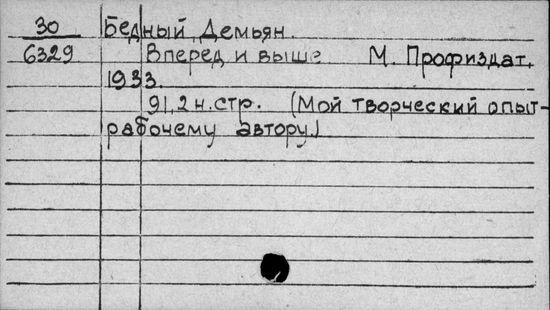 30 Бедный Демьян.
6329 Вперед и выше М. Профиздат,
1933.
91,2 н.стр. (Мой творческий опыт-
рабочему автору.)